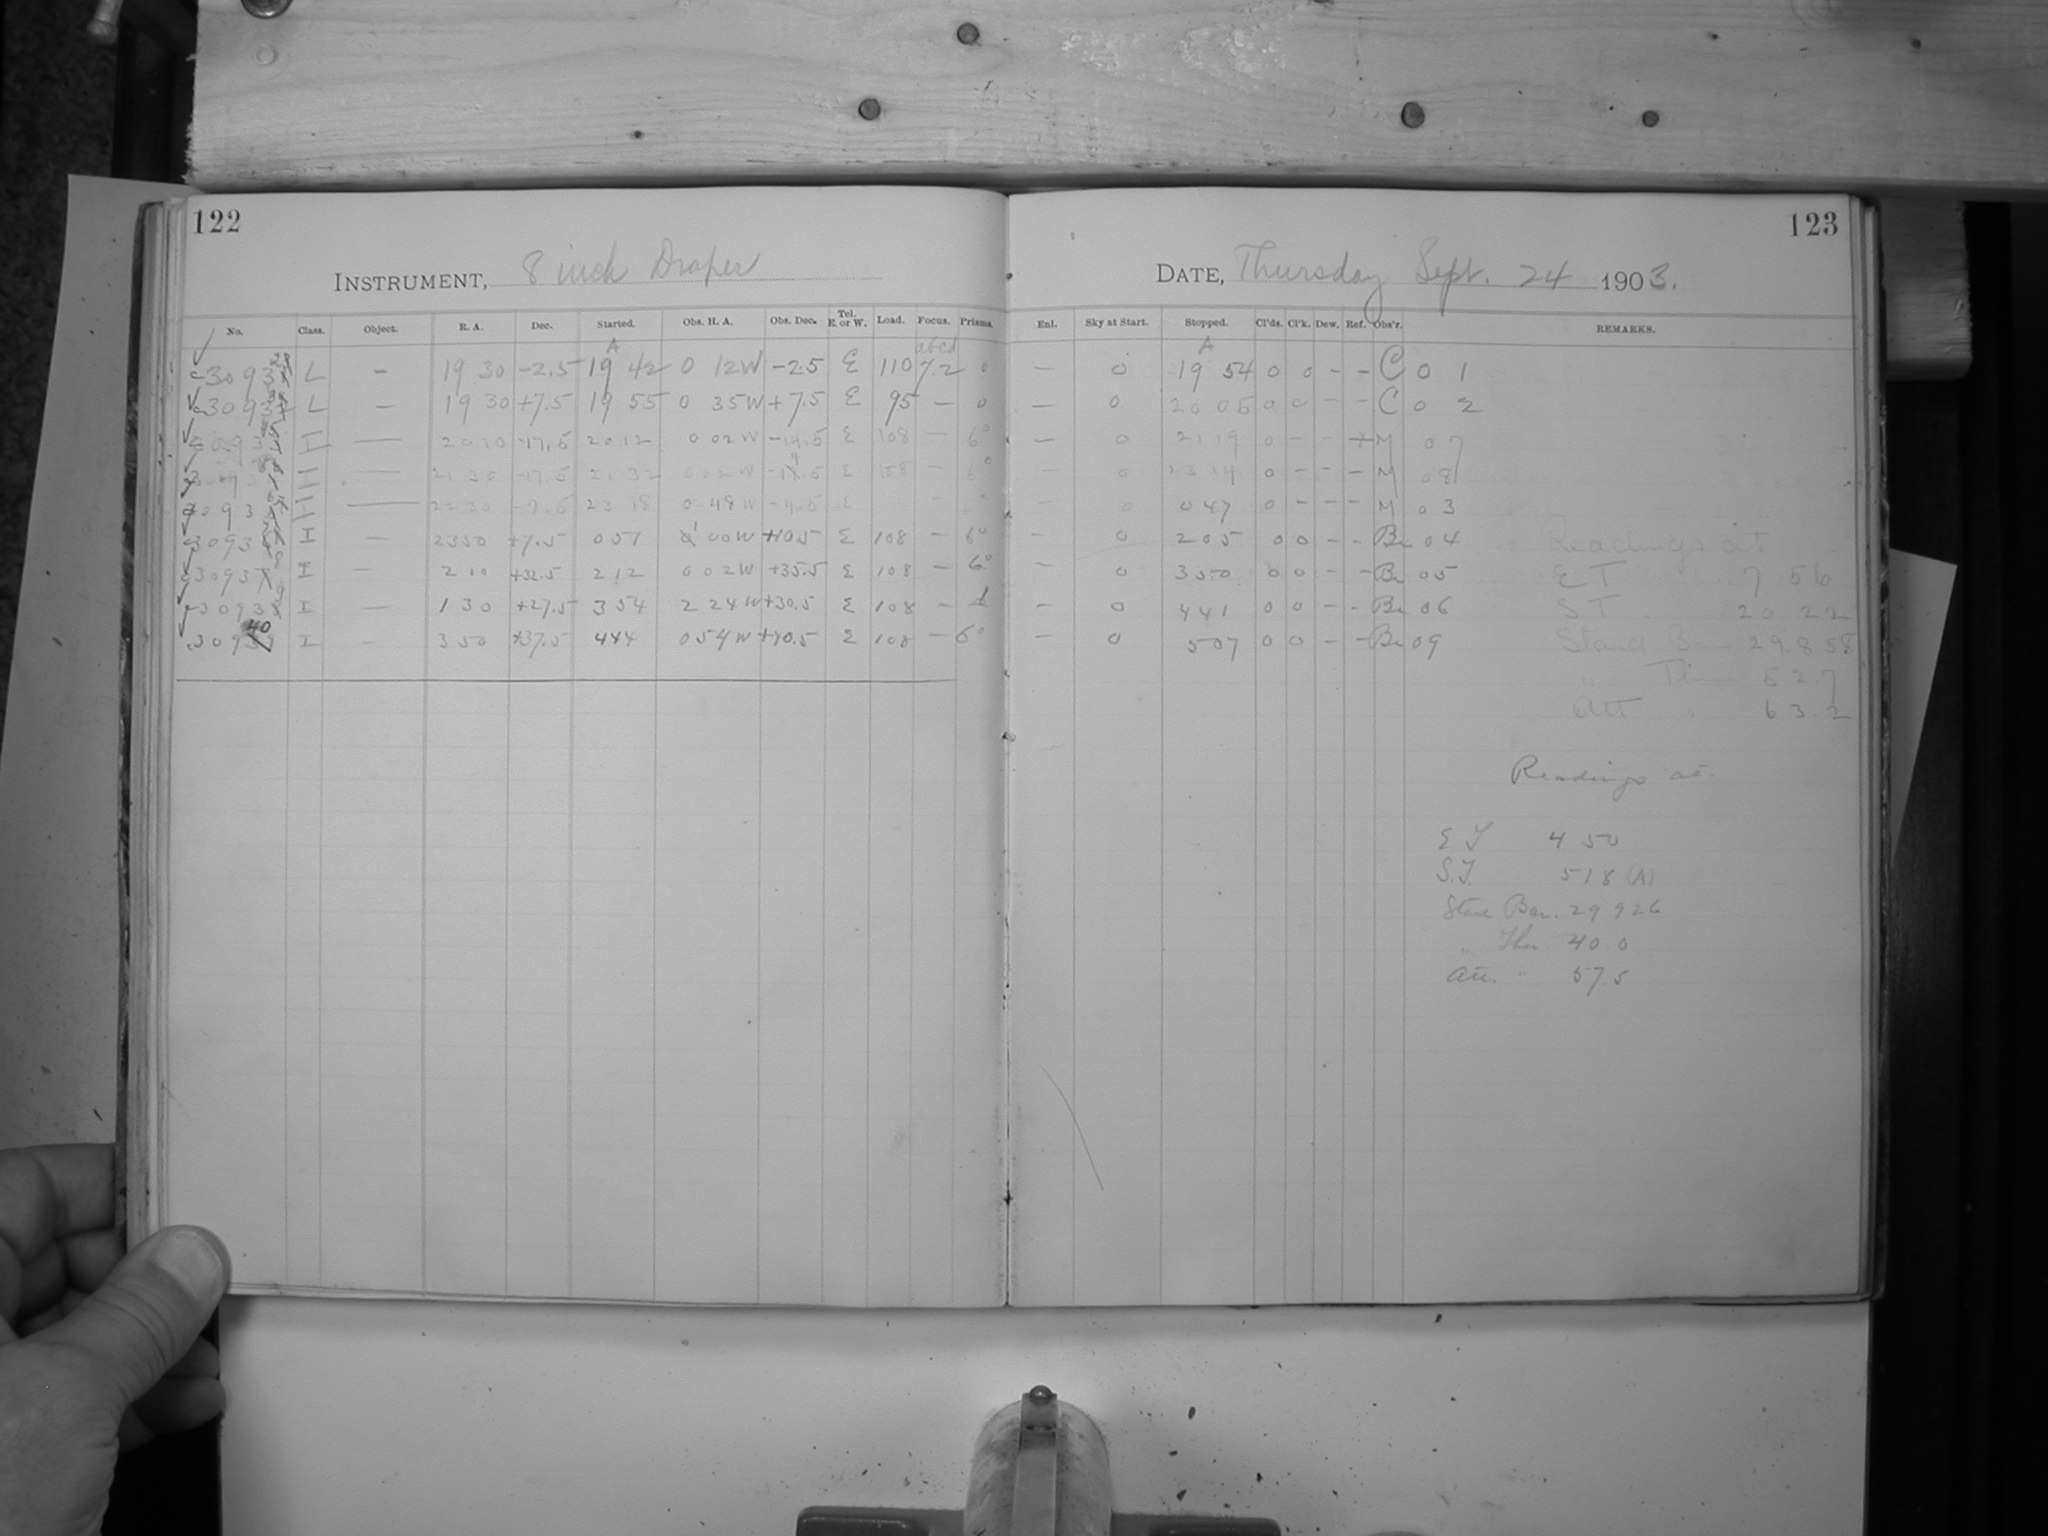 122
INSTRUMENT, 8 inch Draper
No. Class. Object. R. A. Dec. Started. Obs. H. A. Obs. Dec. Tel. E. or W. Load. Focus. Prisms.
A abcd
L — 19 30 -2.5 19 42 0 12W -2.5 E 110 7.2 0
L — 19 30 +7.5 19 55 0 35W +7.5 E 95 — 0
I — 20 10 -17.5 20 12 0 02W E 108 — 6°
I — 21 30 -17.5 21 32 0 02W E 108 — 6°
I — 22 30 -7.5 23 18 0 48W E
I — 23 50 +7.5 0 51 00W +10.5 E 108 — 6°
I — 2 10 +32.5 2 12 0 02W +35.5 E 108 — 6°
I — 1 30 +27.5 3 54 2 24W +30.5 E 108 —
40
I — 3 50 +37.5 4 44 0 54W +40.5 E 108 — 6°
123
DATE, Thursday Sept. 24 1903.
Enl. Sky at Start. Stopped. Cl'ds. Cl'k. Dew. Ref. Obs'r. REMARKS.
A
— 0 19 54 0 0 - - C 0 1
— 0 20 05 0 0 - - C 0 2
— 0 21 19 0 - - M 0 7
— 0 23 14 0 - - - M 0 8
0 0 47 0 - - - M 0 3
— 0 2 05 0 0 - - Br 04
— 0 3 50 0 0 - - Br 05
— 0 4 41 0 0 - - Br 06
— 0 5 07 0 0 - - Br 09
Readings at
E T 7 56
S T 20 22
Stand B 29.858
" Ther 52.7
Att " 63.2
Readings at.
E T 4 50
S.T. 5 18 (A)
Stand Bar. 29 926
" Ther. 40.0
Att. " 57.5